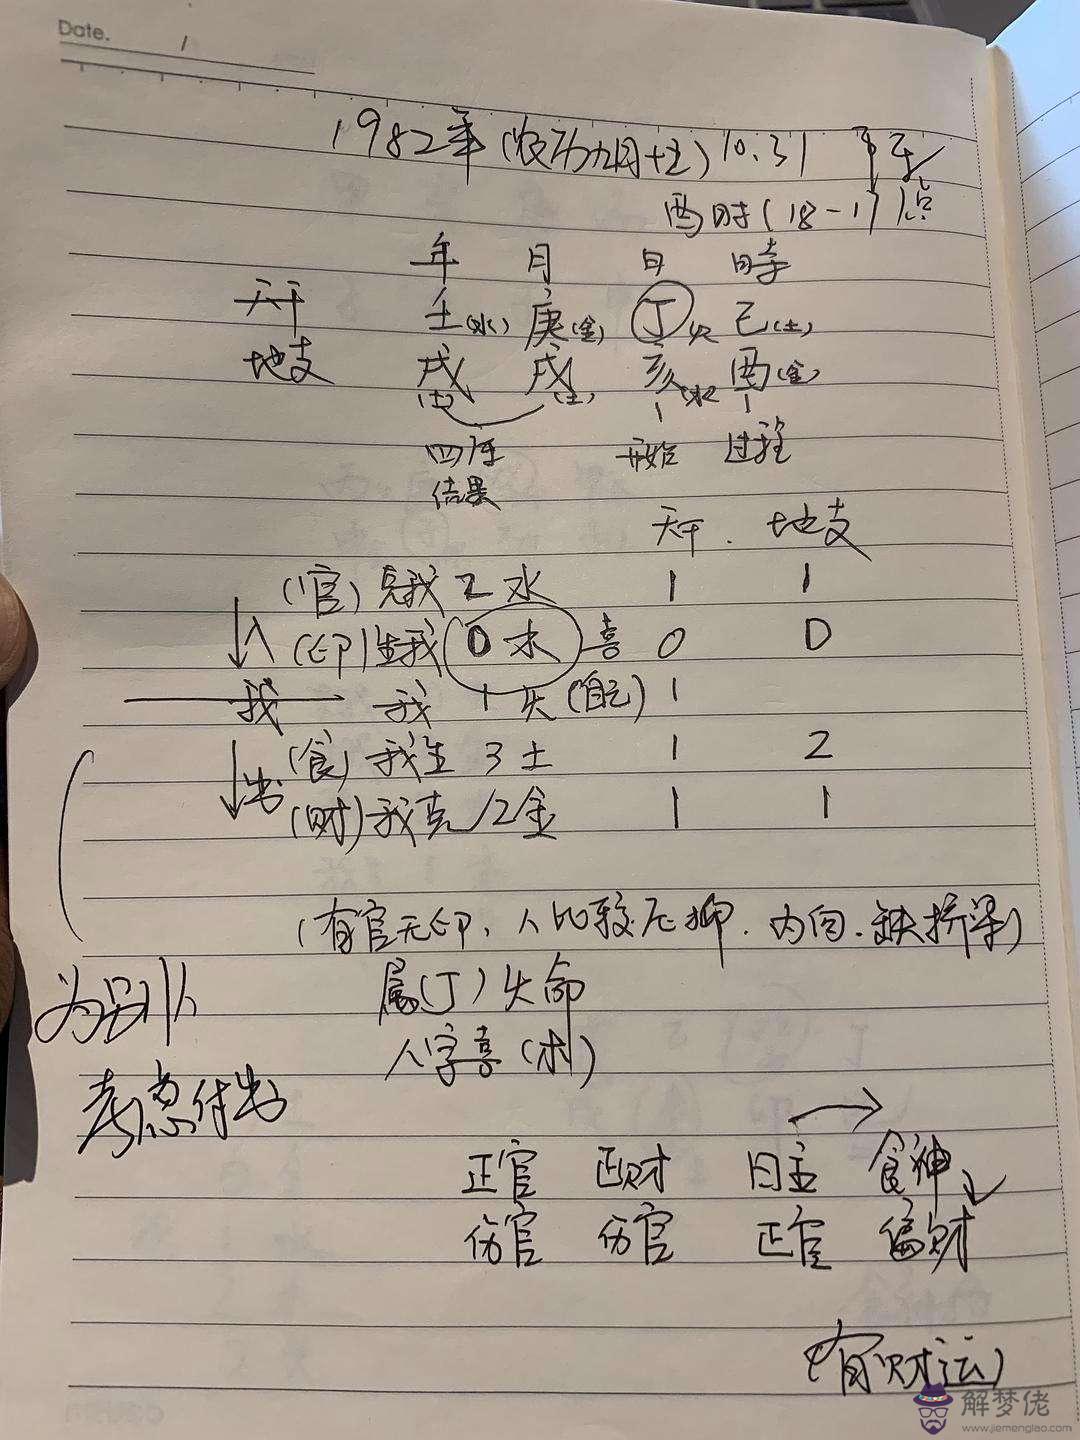 Date.
1982年(农历九月十五)10.31
酉时(18-17点
年 月 日 時
天干 壬(水) 庚(金) 丁火 己(土)
地支 戌(土) 戌(土) 亥(水) 酉(金)
四库 开始 过程
结果
天干. 地支
(官)克我 2 水 1 1
入 (印)生我 0 木 喜 0 0
我 我 1 火(自己) 1
出 (食)我生 3 土 1 2
(财)我克 2金 1 1
(有官无印、人比较压抑.内向.缺桥梁)
为别人 属(丁)火命
八字喜(木)
考虑付出
正官 正财 日主 食神
伤官 伤官 正官 偏财
(有财运)
解梦佬
www.jiemenglao.com